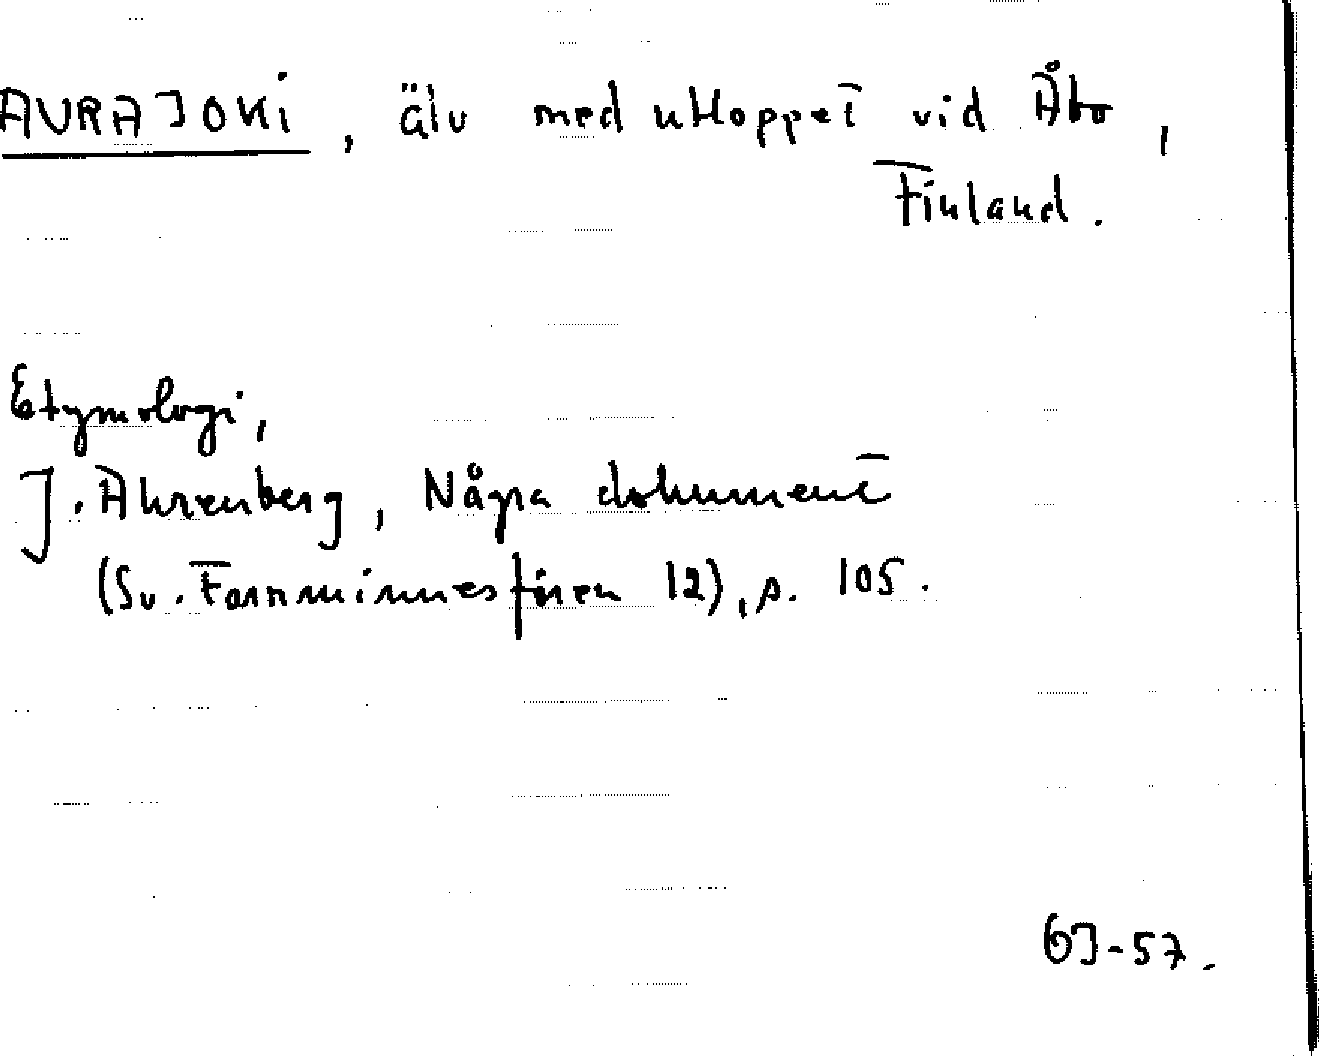 AURAJOKI, älv med utloppet vid Åbo,
Finland.
Etymologi,
J. Ahrenberg, Några dokument
(Sv. Fornminnesfören 12), s. 105.
GJ-57.